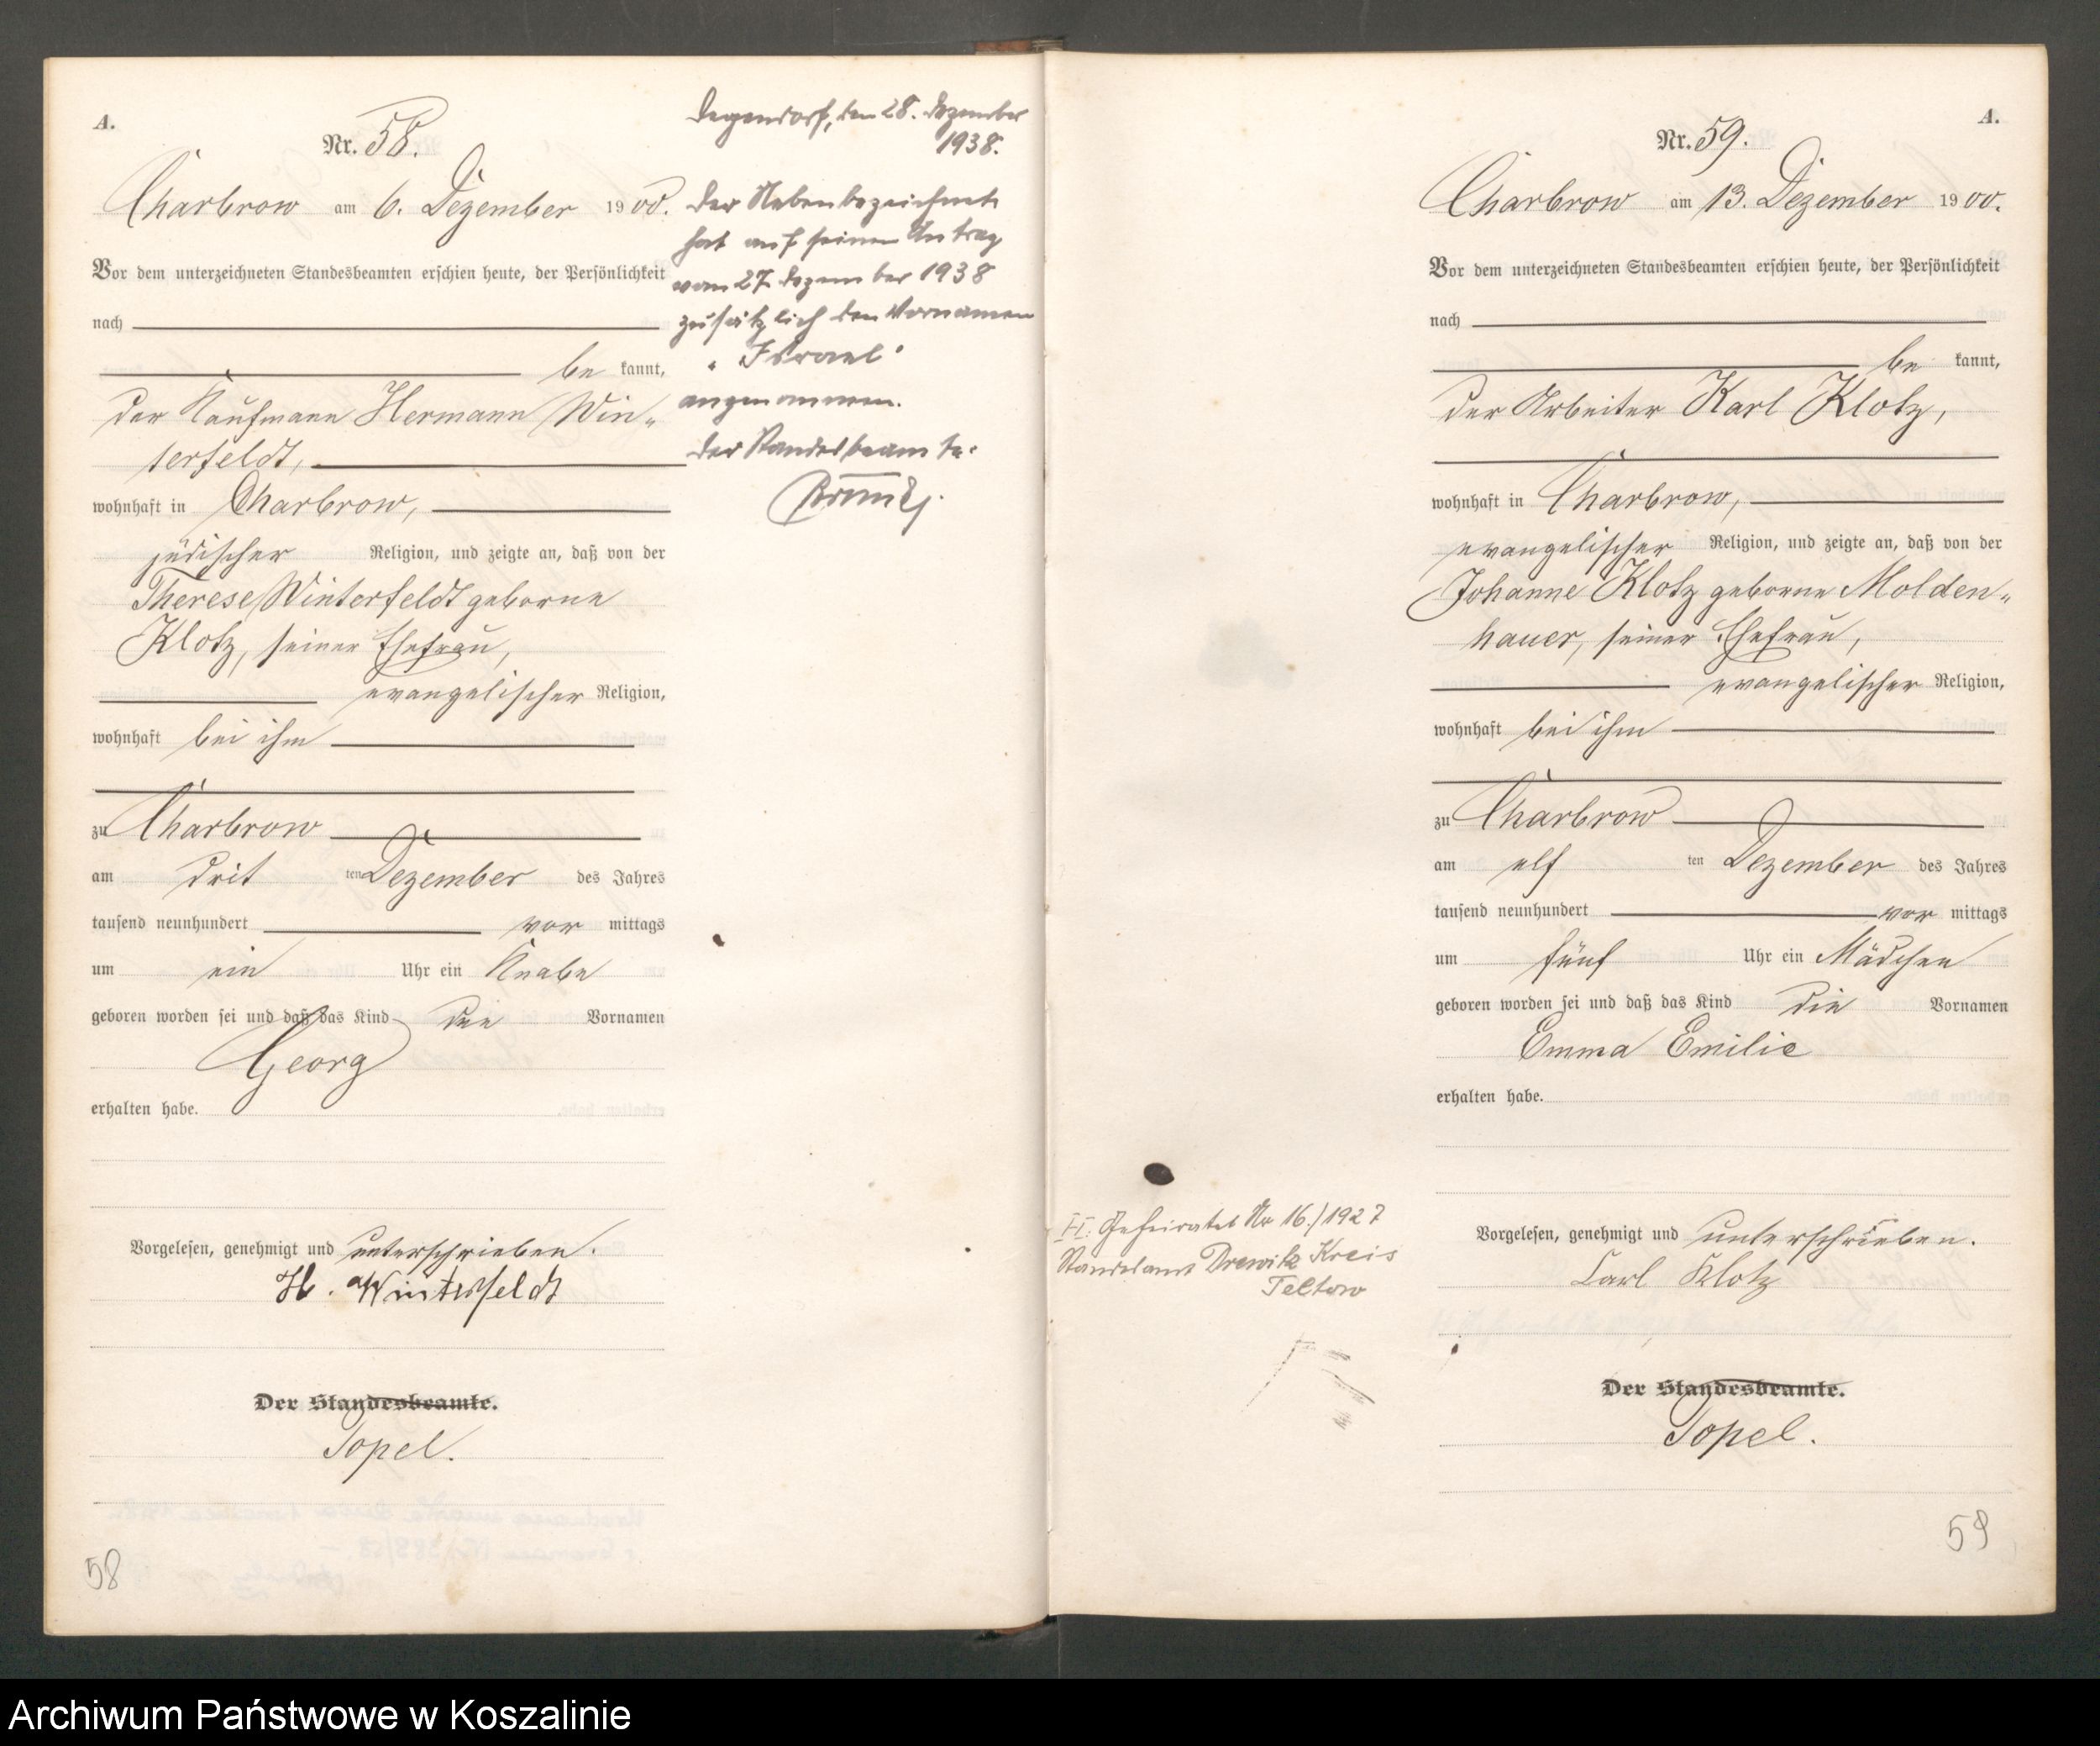 A.
Nr. 58.
Charbrow am 6. Dezember 1900.
Vor dem unterzeichneten Standesbeamten erschien heute, der Persönlichkeit
nach
be kannt,
der Kaufmann Hermann Win„
terfeldt,
wohnhaft in Charbrow,
jüdischer Religion, und zeigte an, daß von der
Therese Winterfeldt geborne
Klotz, seiner Ehefrau,
evangelischer Religion,
wohnhaft bei ihm
zu Charbrow
am drit ten Dezember des Jahres
tausend neunhundert vor mittags
um ein Uhr ein Knabe
geboren worden sei und daß das Kind die Vornamen
Georg
erhalten habe.
Vorgelesen, genehmigt und unterschrieben.
H. Winterfeldt
Der Standesbeamte.
Topel.
58
Degendorf, den 28. Dezember
1938.
Der Nebenbezeichnete
hat auf seinen Antrag
vom 27. Dezember 1938
zusätzlich den Vornamen
„Israel"
angenommen.
Der Standesbeamte:
A.
Nr. 59.
Charbrow am 13. Dezember 1900.
Vor dem unterzeichneten Standesbeamten erschien heute, der Persönlichkeit
nach
be kannt,
der Arbeiter Karl Klotz,
wohnhaft in Charbrow,
evangelischer Religion, und zeigte an, daß von der
Johanne Klotz geborne Molden„
hauer, seiner Ehefrau,
evangelischer Religion,
wohnhaft bei ihm
zu Charbrow
am elf ten Dezember des Jahres
tausend neunhundert vor mittags
um fünf Uhr ein Mädchen
geboren worden sei und daß das Kind die Vornamen
Emma Emilie
erhalten habe.
Vorgelesen, genehmigt und unterschrieben.
Carl Klotz
Der Standesbeamte.
Topel.
59
H: Geheiratet Nr 16./1927
Standesamt Drewitz Kreis
Teltow
Archiwum Państwowe w Koszalinie